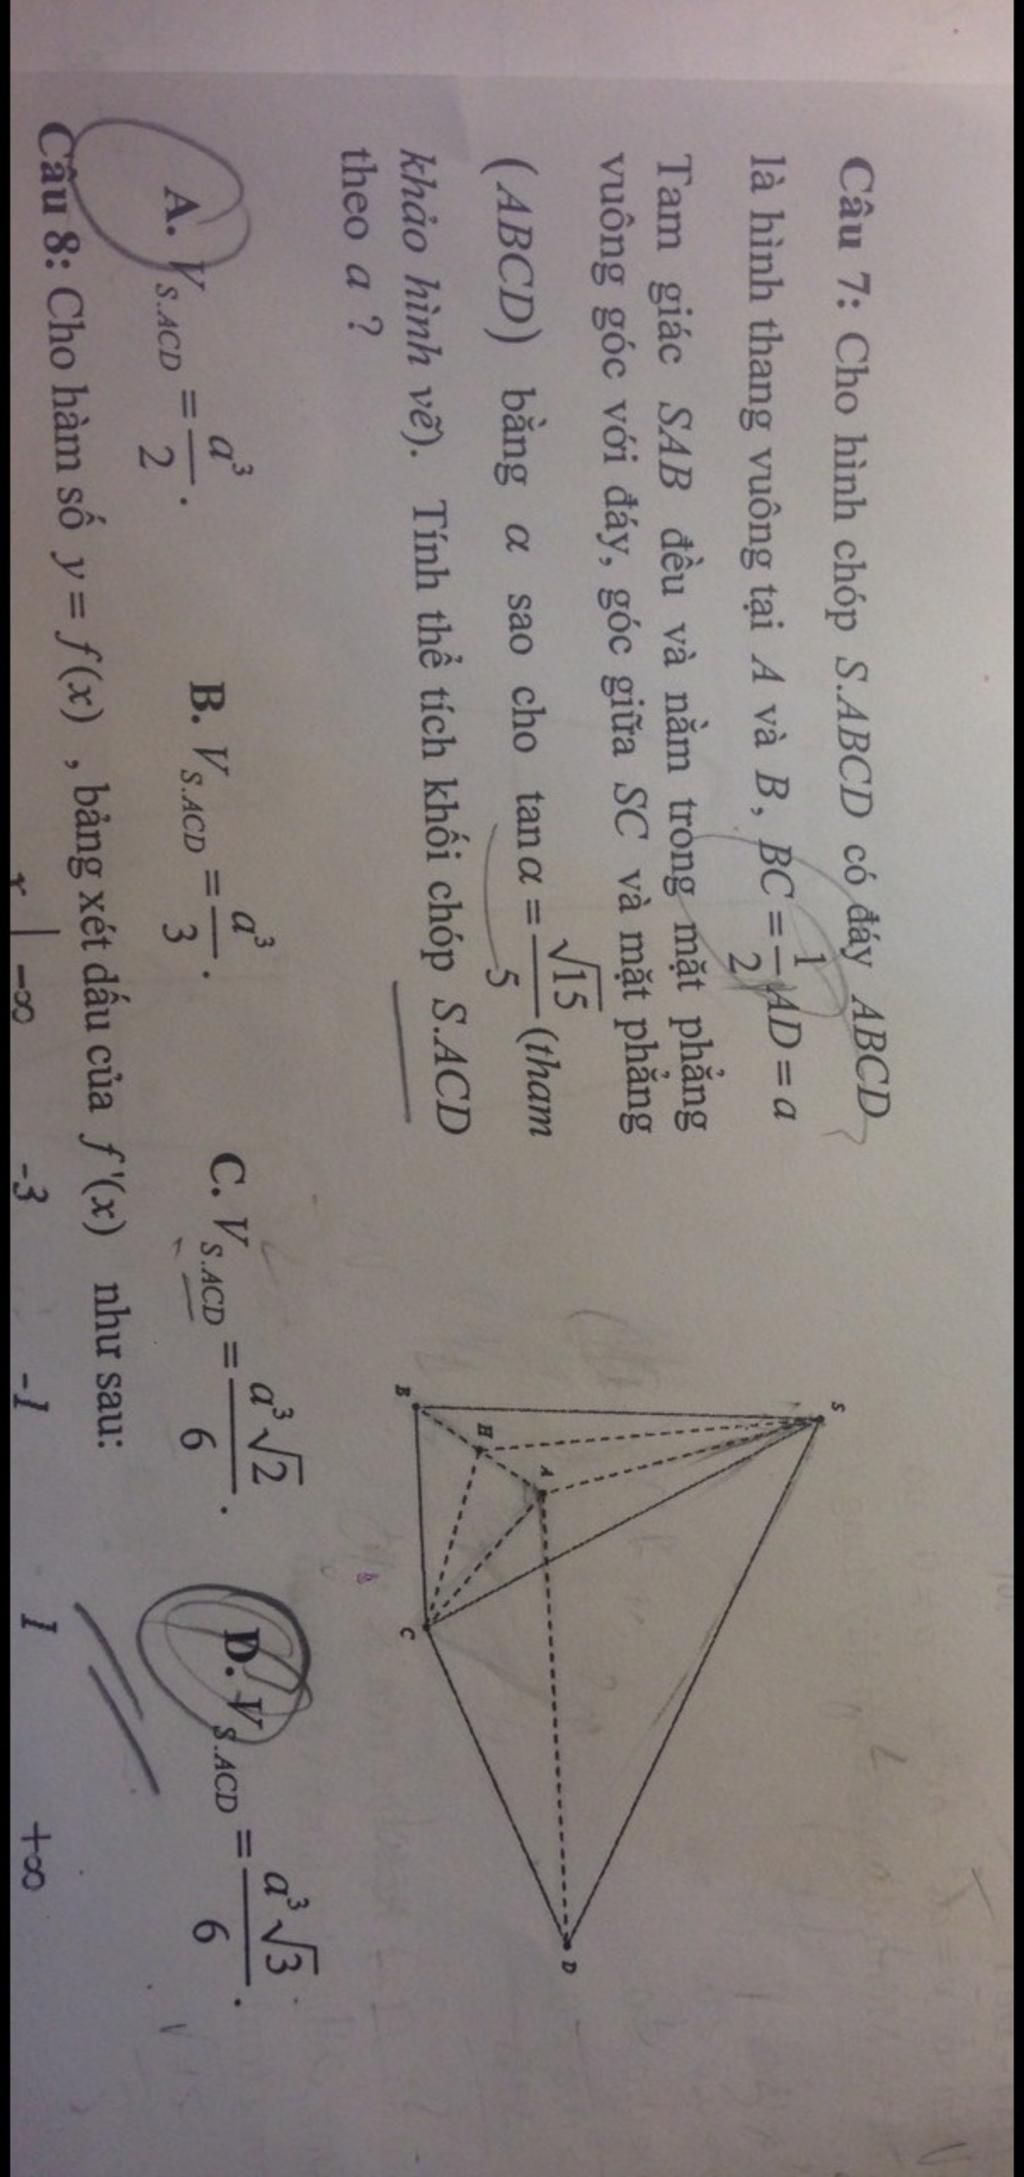 Câu 7: Cho hình chóp S.ABCD có đáy ABCD
là hình thang vuông tại A và B, BC = 1/2 AD = a
Tam giác SAB đều và nằm trong mặt phẳng
vuông góc với đáy, góc giữa SC và mặt phẳng
(ABCD) bằng α sao cho tan α = √15/5 (tham
khảo hình vẽ). Tính thể tích khối chóp S.ACD
theo a ?
S
B
H
A
C
D
A. V_{S.ACD} = a³/2.
B. V_{S.ACD} = a³/3.
C. V_{S.ACD} = a³√2/6.
D. V_{S.ACD} = a³√3/6.
Câu 8: Cho hàm số y = f(x) , bảng xét dấu của f'(x) như sau:
x -∞ -3 -1 1 +∞